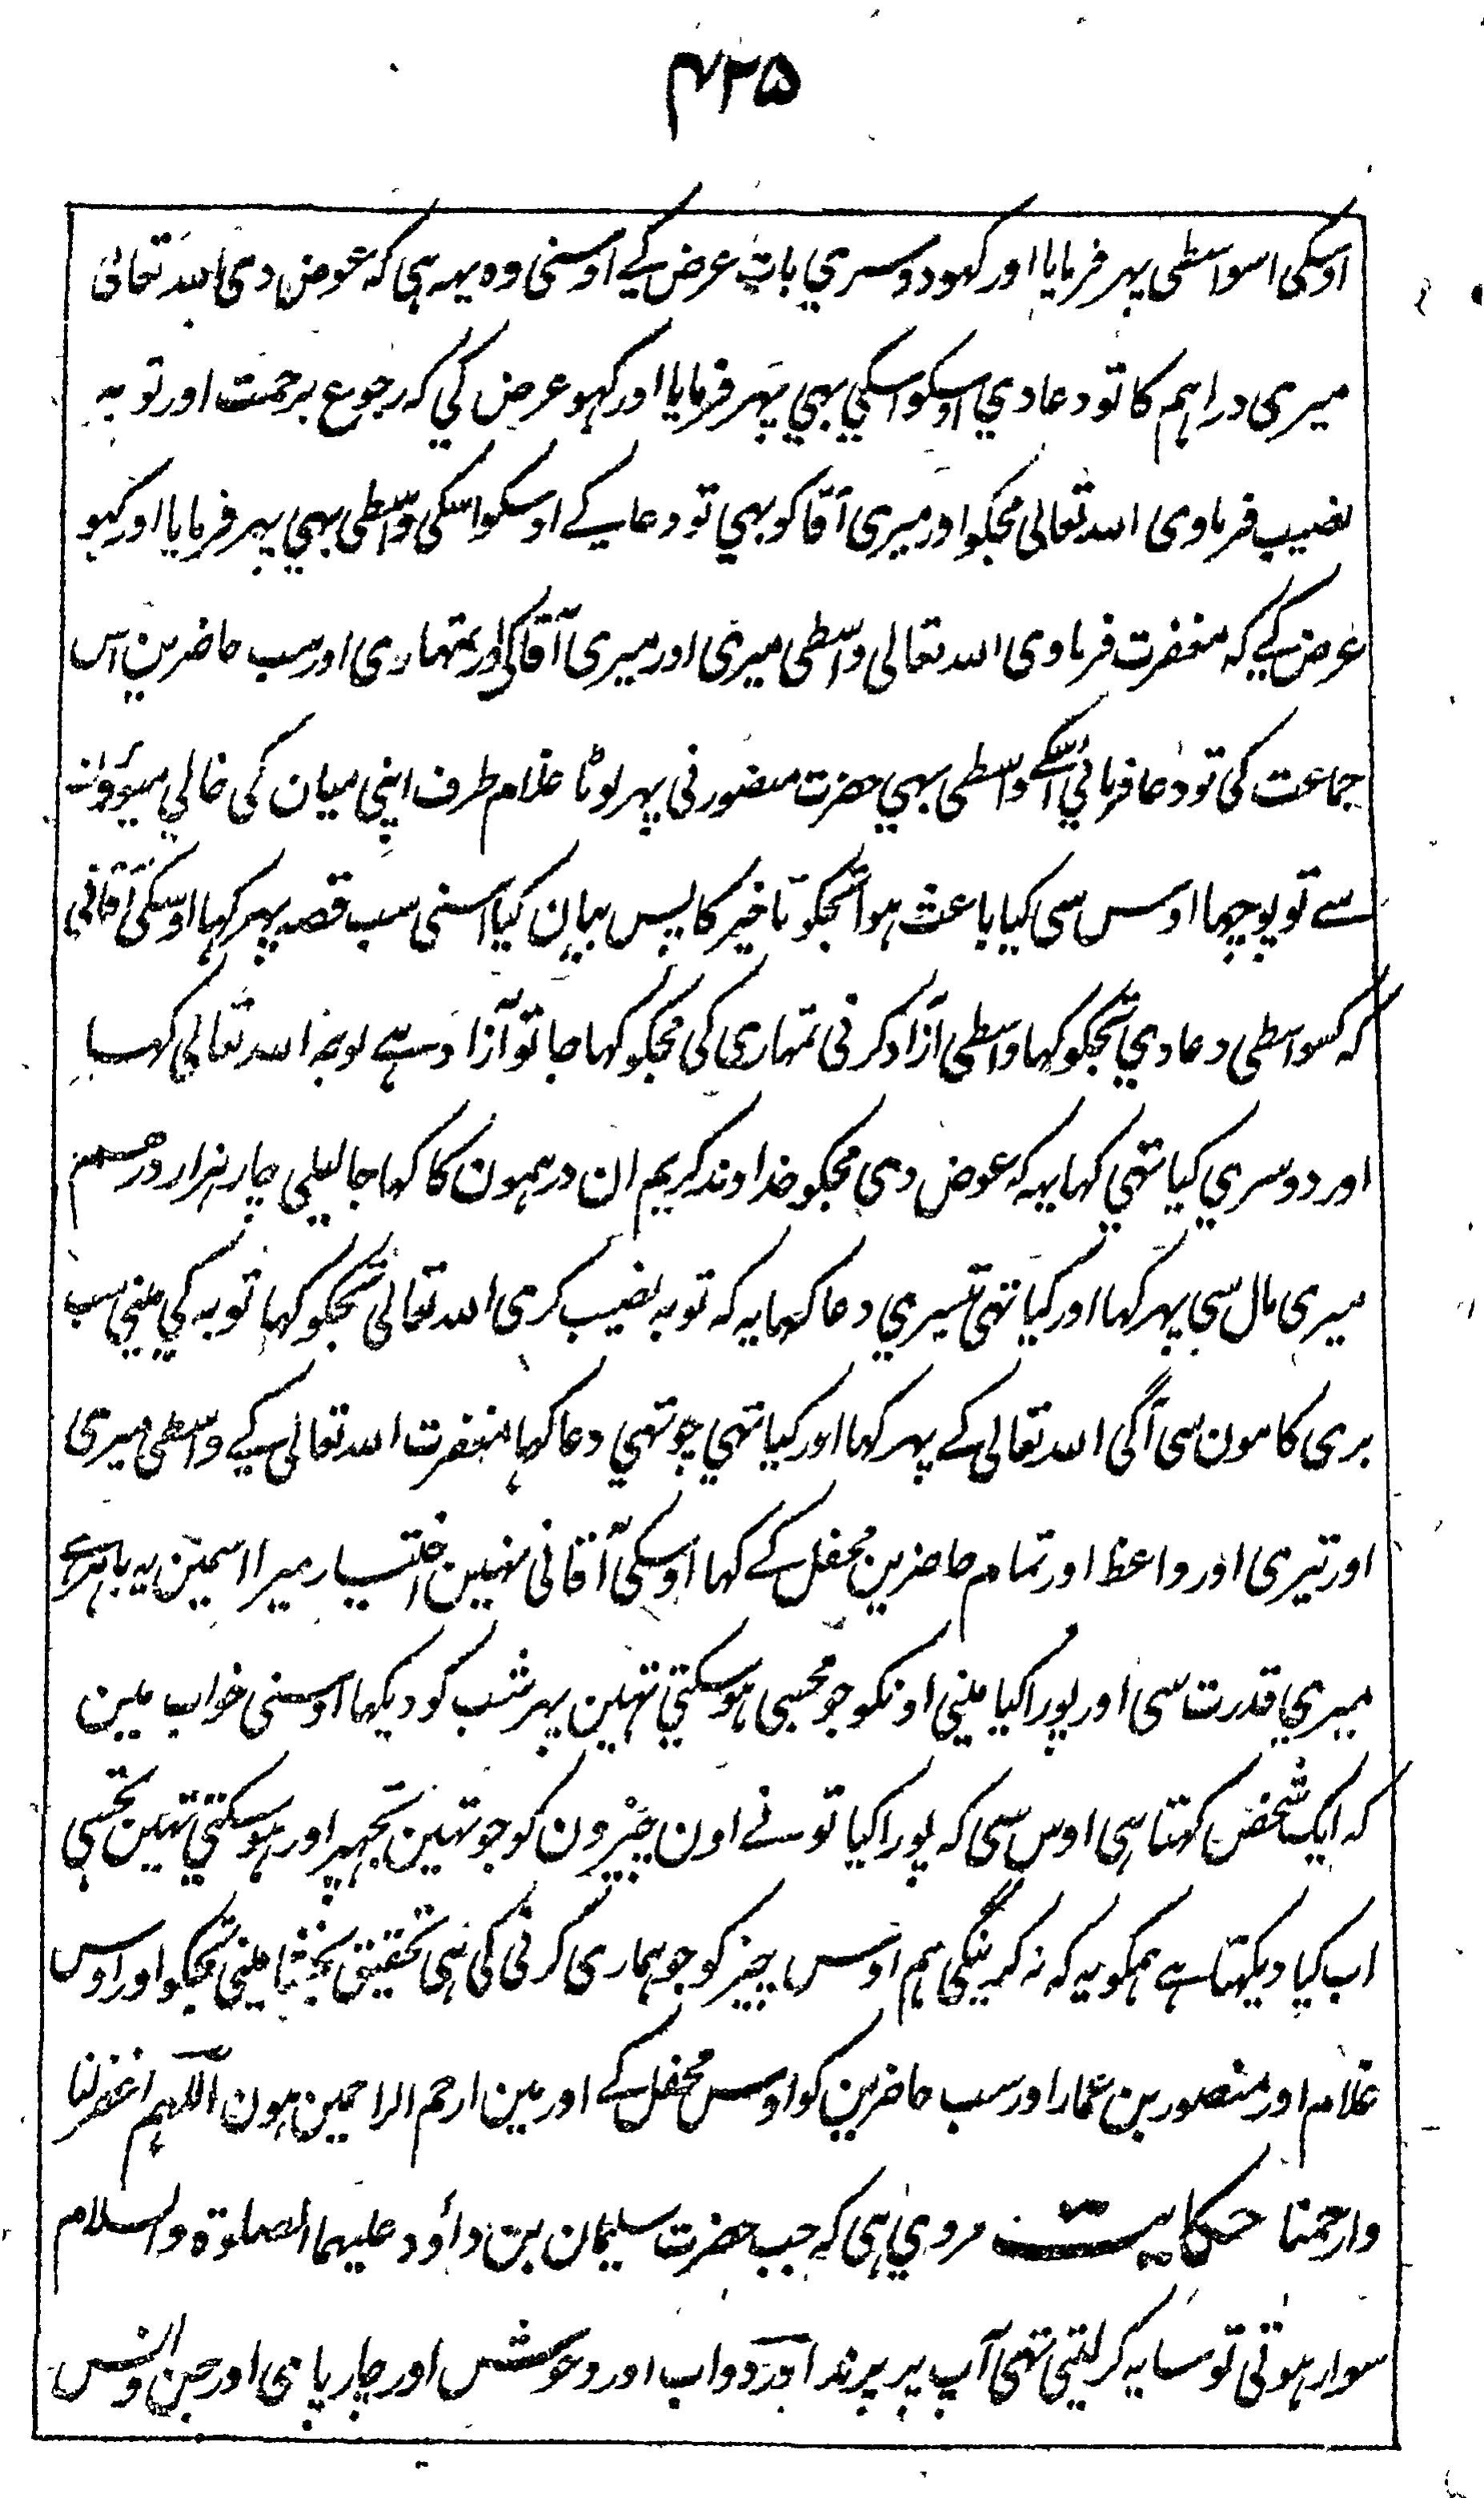 ۴۲۵
اوسکی اسواسطی پهر فرمایا اور کهو دوسري بات عرض کے اوسنی وه یهه هی که عوض دی الله تعالی
میری دراهم کا تو دعا دي اوسکو اسکي بهي پهر فرمایا اور کهو عرض کي که رجوع برحمت اور توبه
نصیب فرماوی الله تعالی مجکو اور میری آقا کو بهي تو دعا کے اوسکو اسکی واسطی بهي پهر فرمایا اور کهو
عرض کے که مغفرت فرماوی الله تعالی واسطی میری اور میری آقا کی اور تمهاری اور سب حاضرین اس
جماعت کی تو دعا فرمائي اسکے واسطی بهي حضرت منصور نی پهر لوٹا غلام طرف اپني میان کی خالي میوؤن
سے تو پوچها اوس سی کیا باعث هوا تجکو تاخیر کا پس بیان کیا اسنی سب قصه پهر کها اوسکی آقا نی
که کسواسطی دعا دي تجکو کها واسطی آزاد کرنی تمهاری کی مجکو کها جا تو آزاد هے لوجه الله تعالی کها
اور دوسري کیا تهي کها یهه که عوض دی مجکو خداوند کریم ان درهمون کا کها جا لیلی چار هزار درهم
میری مال سی پهر کها اور کیا تهی تیسري دعا کها یه که توبه نصیب کری الله تعالی تجکو کها توبه کي میني سب
بری کامون سی آگی الله تعالی کے پهر کها اور کیا تهي چوتهي دعا کها مغفرت الله تعالی کے واسطی میری
اور تیری اور واعظ اور تمام حاضرین محفل کے کها اوسکی آقا نی نهین اختیار میرا اسمین یه باهر هے
میري قدرت سی اور پورا کیا میني اونکو جو مجسی هوسکتي تهین پهر شب کو دیکها اوسنی خواب مین
که ایک شخص کهتا هی اوس سی که پورا کیا تو نے اون چیزون کو جو تهین تجهپر اور هوسکتي تهین تجسی
اب کیا دیکهتا هے همکو یه که نه کرینگی هم اوس چیز کو جو هماری کرنی کی هی تحقیق بخشا میني تجکو اور اوس
غلام اور منصور بن عمار اور سب حاضرین کو اوس محفل کے اور مین ارحم الراحمین هون اللهم اغفر لنا
وارحمنا حکایت مروي هی که جب حضرت سلیمان بن داؤد علیهما الصلوة والسلام
سوار هوتی تو سایه کر لیتی تهی آپ پر پرند اور دواب اور وحوش اور چارپای اور جن وانس